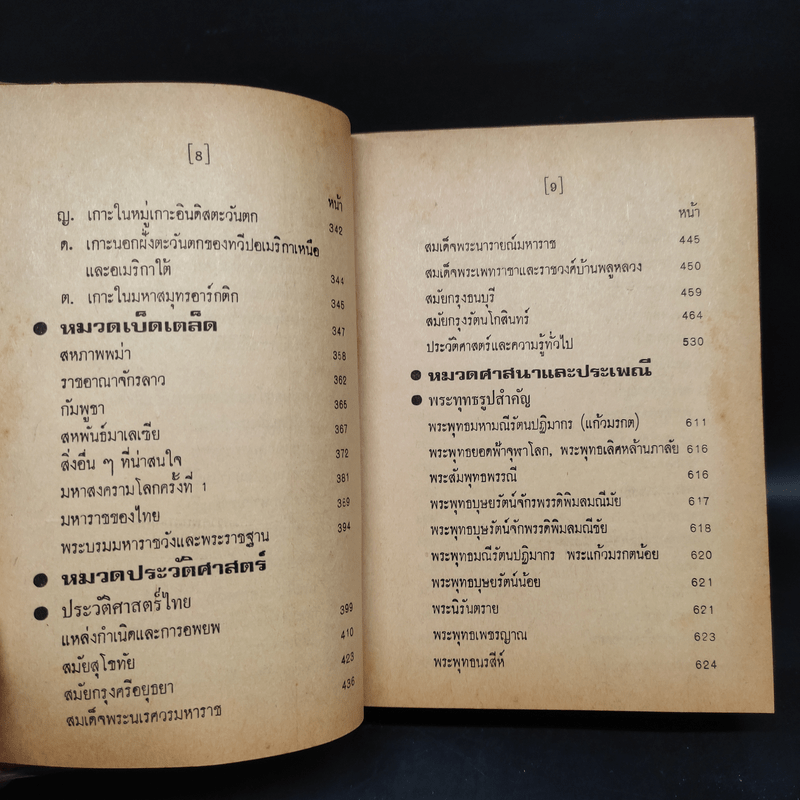 [8]
หน้า
ญ. เกาะในหมู่เกาะอินดิสตะวันตก 342
ด. เกาะนอกฝั่งตะวันตกของทวีปอเมริกาเหนือ
และอเมริกาใต้ 344
ต. เกาะในมหาสมุทรอาร์กติก 345
● หมวดเบ็ดเตล็ด 347
สหภาพพม่า 358
ราชอาณาจักรลาว 362
กัมพูชา 365
สหพันธ์มาเลเซีย 367
สิ่งอื่น ๆ ที่น่าสนใจ 372
มหาสงครามโลกครั้งที่ 1 381
มหาราชของไทย 389
พระบรมมหาราชวังและพระราชฐาน 394
● หมวดประวัติศาสตร์
● ประวัติศาสตร์ไทย
แหล่งกำเนิดและการอพยพ 399
สมัยสุโขทัย 410
สมัยกรุงศรีอยุธยา 423
สมเด็จพระนเรศวรมหาราช 436
[9]
หน้า
สมเด็จพระนารายณ์มหาราช 445
สมเด็จพระเพทราชาและราชวงศ์บ้านพลูหลวง 450
สมัยกรุงธนบุรี 459
สมัยกรุงรัตนโกสินทร์ 464
ประวัติศาสตร์และความรู้ทั่วไป 530
● หมวดศาสนาและประเพณี
● พระพุทธรูปสำคัญ
พระพุทธมหามณีรัตนปฏิมากร (แก้วมรกต) 611
พระพุทธยอดฟ้าจุฬาโลก, พระพุทธเลิศหล้านภาลัย 616
พระสัมพุทธพรรณี 616
พระพุทธบุษยรัตน์จักรพรรดิพิมลมณีมัย 617
พระพุทธบุษรัตน์จักพรรดิพิมลมณีชัย 618
พระพุทธมณีรัตนปฏิมากร พระแก้วมรกตน้อย 620
พระพุทธบุษยรัตน์น้อย 621
พระนิรันตราย 621
พระพุทธเพชรญาณ 623
พระพุทธนรสีห์ 624